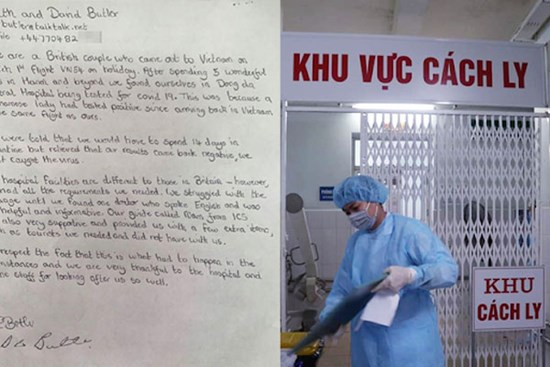 and David Butler
butler@talktalk.net
+44770482
are a British couple who came out to Vietnam on
1st Flight VN54 on holiday. After spending 5 wonderful
in Hanoi and beyond we found ourselves in Dong da
Hospital being tested for covid 19. This was because a
lady had tested positive since arriving back in Vietnam
same flight as ours.
were told that we would have to spend 14 days in
but relieved that our results came back negative, we
caught the virus.
hospital facilities are different to those in Britain - however,
all the requirements we needed. We struggled with the
until we found one doctor who spoke English and was
helpful and informative. Our guide called from ICS
also very supportive and provided us with a few extra items,
as tourists we needed and did not have with us.
respect the fact that this is what had to happen in the
and we are very thankful to the hospital and
staff for looking after us so well.
Butler
KHU VỰC CÁCH LY
KHU
CÁCH LY